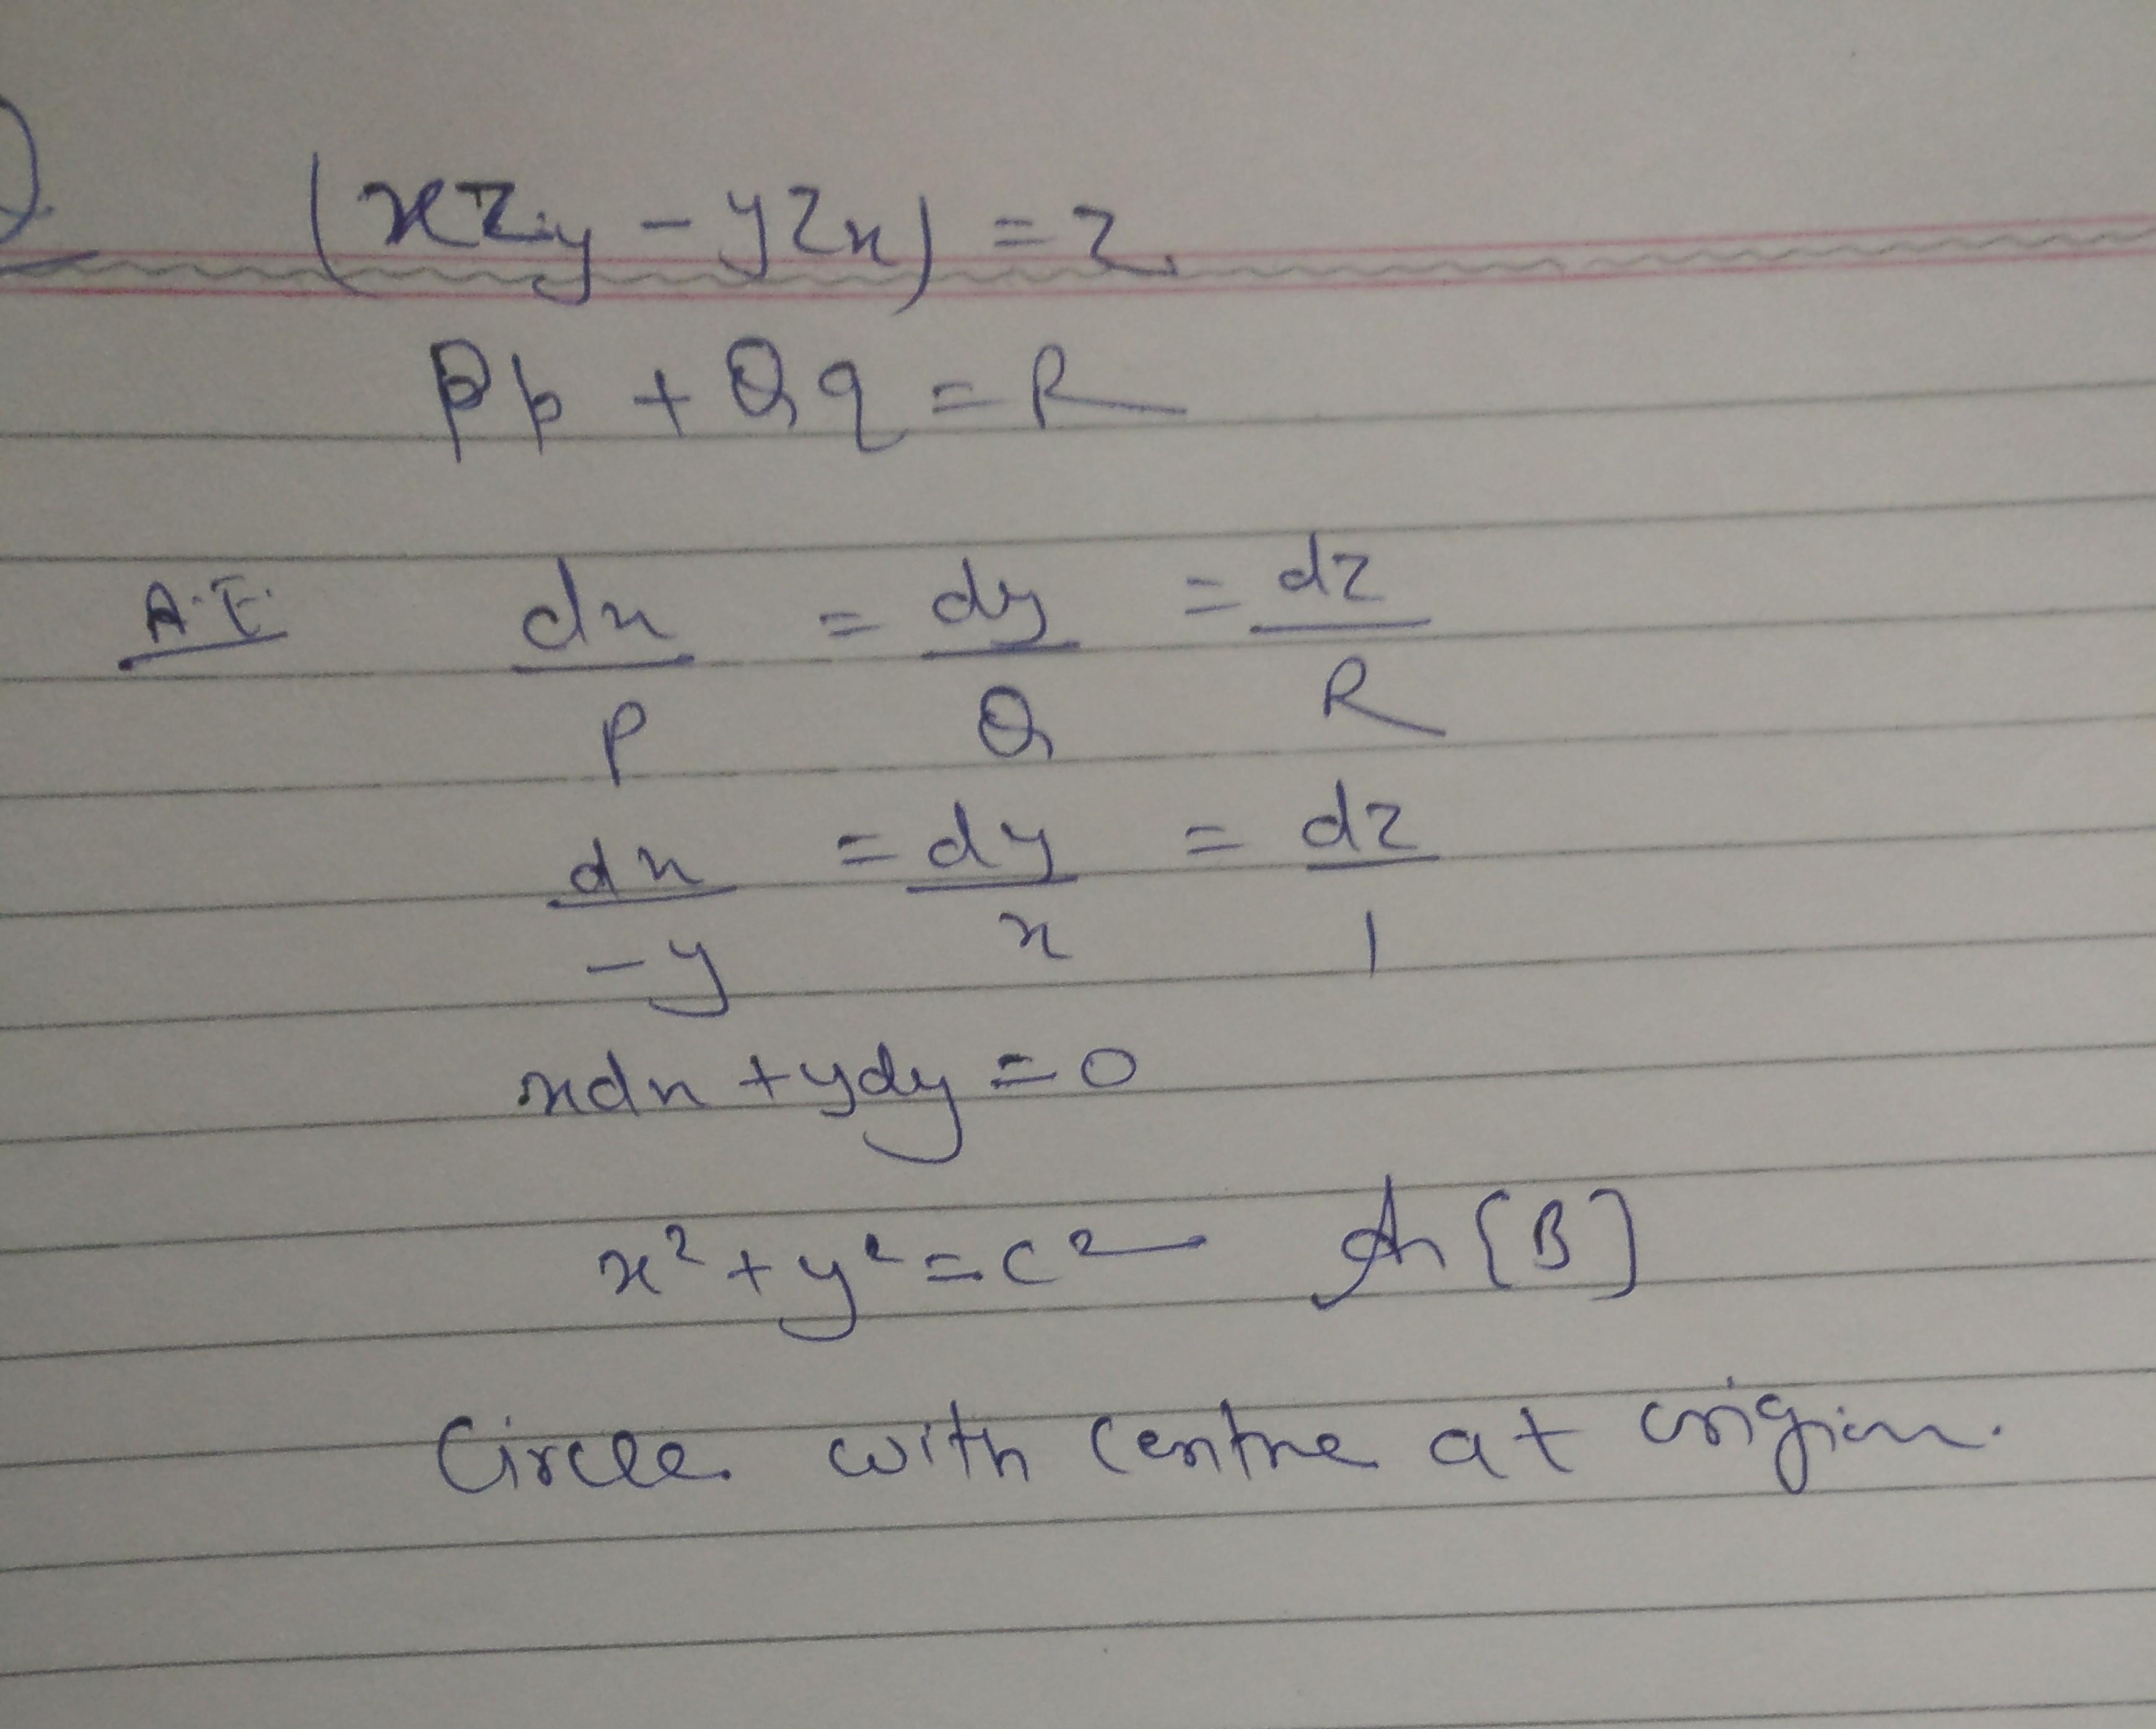 (xzy - yzx) = z
Pp + Qq = R
A.E. dx/P = dy/Q = dz/R
dx/-y = dy/x = dz/1
xdx + ydy = 0
x² + y² = c² An [B]
Circle with centre at origin.